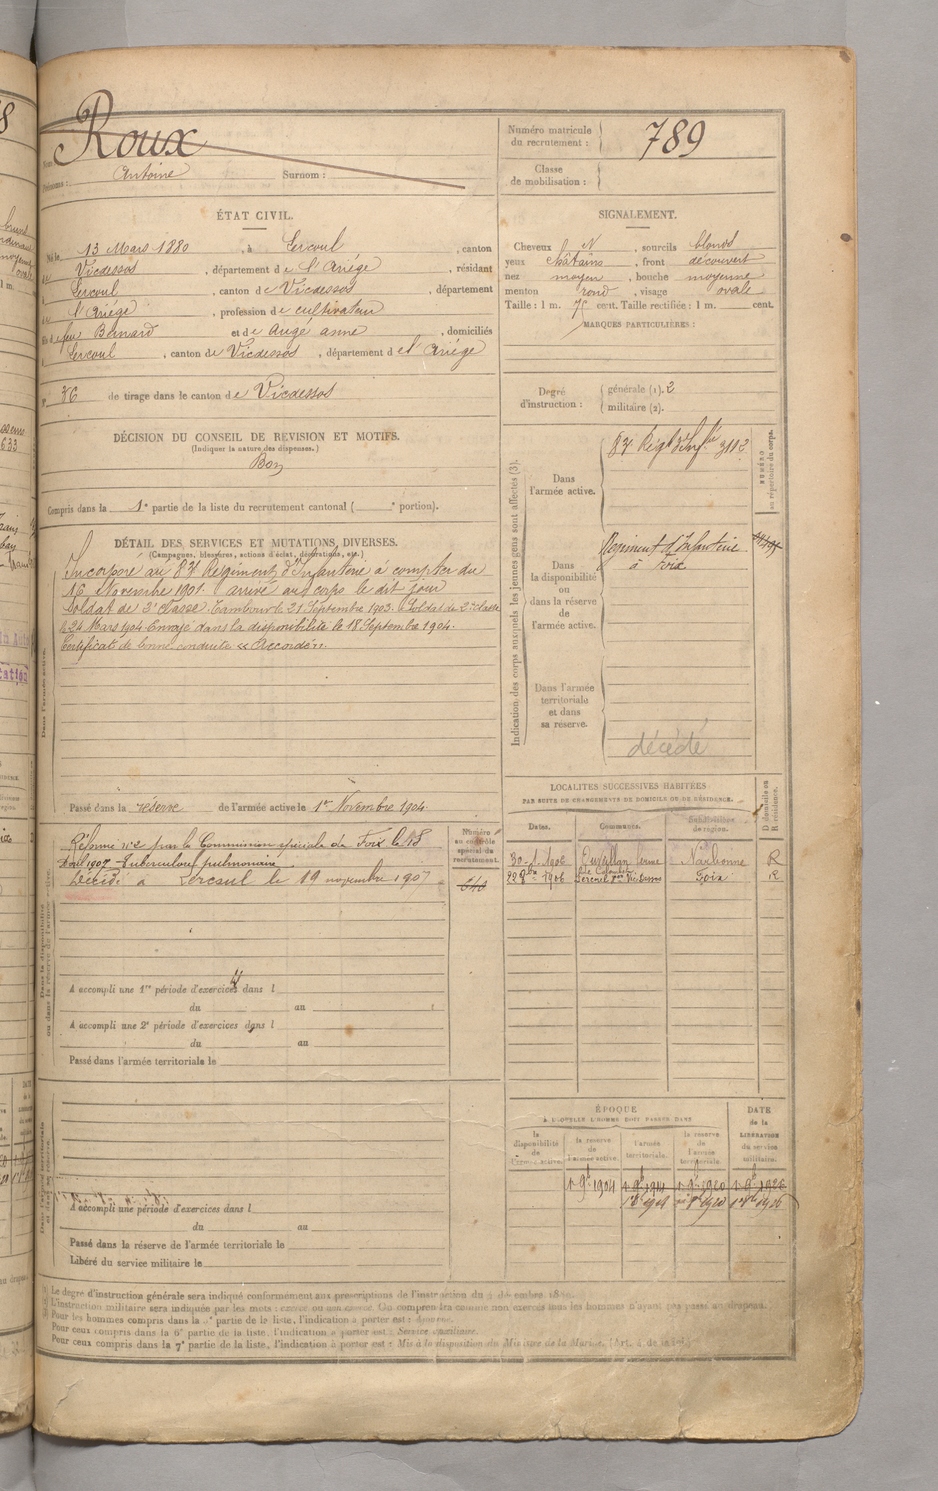 Roux
Nom :
Prénoms : Antoine Surnom :
Numéro matricule
du recrutement : 789
Classe
de mobilisation :
ÉTAT CIVIL.
Né le 13 Mars 1880, à Lercoul, canton
de Vicdessos, département de l'Ariége, résidant
à Lercoul, canton de Vicdessos, département
de l'Ariége, profession de cultivateur
fils de feu Bernard et de Augé anne, domiciliés
à Lercoul, canton de Vicdessos, département de l'Ariége
N° 36 de tirage dans le canton de Vicdessos
DÉCISION DU CONSEIL DE REVISION ET MOTIFS.
(Indiquer la nature des dispenses.)
Bon
Compris dans la 1e partie de la liste du recrutement cantonal ( e portion).
SIGNALEMENT.
Cheveux N, sourcils blonds
yeux châtains, front découvert
nez moyen, bouche moyenne
menton rond, visage ovale
Taille : 1 m. 75 cent. Taille rectifiée : 1 m. cent.
MARQUES PARTICULIÈRES :
Degré
d'instruction :
générale (1). 2
militaire (2).
DÉTAIL DES SERVICES ET MUTATIONS DIVERSES.
(Campagnes, blessures, actions d'éclat, décorations, etc.)
Incorporé au 87 Régiment d'Infanterie à compter du
16 Novembre 1901. arrivé au corps le dit jour
Soldat de 2e classe. Tambour le 21 Septembre 1903. Soldat de 2e classe
le 24 Mars 1904. Envoyé dans la disponibilité le 18 Septembre 1904.
Certificat de bonne conduite « Accordé ».
Dans l'armée active.
Passé dans la réserve de l'armée active le 1er Novembre 1904
Indication des corps auxquels les jeunes gens sont affectés (3).
Dans
l'armée active.
87 Régt d'Infie 3102
NUMÉRO
au répertoire du corps.
Dans
la disponibilité
ou
dans la réserve
de
l'armée active.
Régiment d'Infanterie
à Foix
Dans l'armée
territoriale
et dans
sa réserve.
décédé
LOCALITÉS SUCCESSIVES HABITÉES
PAR SUITE DE CHANGEMENTS DE DOMICILE OU DE RÉSIDENCE.
Dates.
Communes.
Subdivisions
de région.
D domicile ou
R résidence.
30-1-1906 Narbonne R
22 8bre 1906 Lercoul Foix R
Numéro
au contrôle
spécial du
recrutement.
640
Réformé n°2 par la Commission spéciale de Foix le 18
Aout 1907 Tuberculose pulmonaire.
Décédé à Lercoul le 19 novembre 1907
Dans la disponibilité
ou dans la réserve de l'armée active
A accompli une 1re période d'exercices dans l
du au
A accompli une 2e période d'exercices dans l
du au
Passé dans l'armée territoriale le
A accompli une période d'exercices dans l
du au
Passé dans la réserve de l'armée territoriale le
Libéré du service militaire le
ÉPOQUE
À LAQUELLE L'HOMME DOIT PASSER DANS
la
disponibilité
de
l'armée active.
la réserve
de
l'armée active.
l'armée
territoriale.
la réserve
de
l'armée
territoriale.
DATE
de la
LIBÉRATION
du service
militaire.
1 9bre 1904 1 9bre 1914 1 9bre 1920 1 9bre 1926
(1) Le degré d'instruction générale sera indiqué conformément aux prescriptions de l'instruction du
(2) L'instruction militaire sera indiquée par les mots : exercé ou non exercé. On comprendra comme non exercés tous les hommes n'ayant pas passé au drapeau.
(3) Pour les hommes compris dans la partie de la liste, l'indication à porter est :
Pour ceux compris dans la 6e partie de la liste, l'indication à porter est : Service auxiliaire.
Pour ceux compris dans la 7e partie de la liste, l'indication à porter est : Mis à la disposition du Ministre de la Marine. (Art. 4 de la loi.)